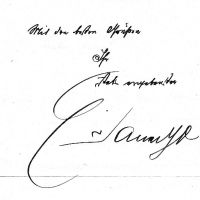 Mit den besten Grüßen
Ihr
stets ergebenster